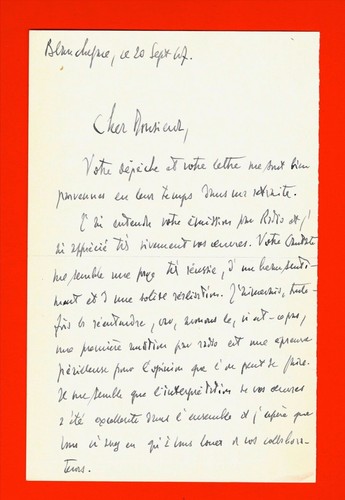 ce 20 Sept 47.
Cher Monsieur,
Votre dépêche et votre lettre me sont bien
parvenues en leur temps dans ma retraite.
J'ai entendu votre émission par Radio et j'
ai apprécié très vivement vos œuvres. Votre Cantate
me semble une page très réussie, d'un beau senti-
ment et d'une solide réalisation. J'aimerais, toute-
fois la réentendre, car, avouons le, n'est-ce pas,
une première audition par radio est une épreuve
pour l'opinion que l'on peut se faire.
Il me semble que l'interprétation de vos œuvres
a été excellente dans l'ensemble et j'espère que
vous n'avez eu qu'à vous louer de vos collabora-
teurs.